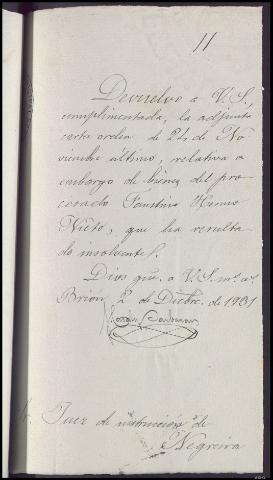 11
Devuelvo a V.S.,
cumplimentada, la adjunta
carta orden de 24 de No
viembre último, relativa a
embargo de bienes del pro-
cesado Faustino
Nieto, que ha resulta-
do insolvente.
Dios gue. a V.S. ms. as.
Brion 2 de Dicbre. de 1931
Juez de instrucción de
Negreira